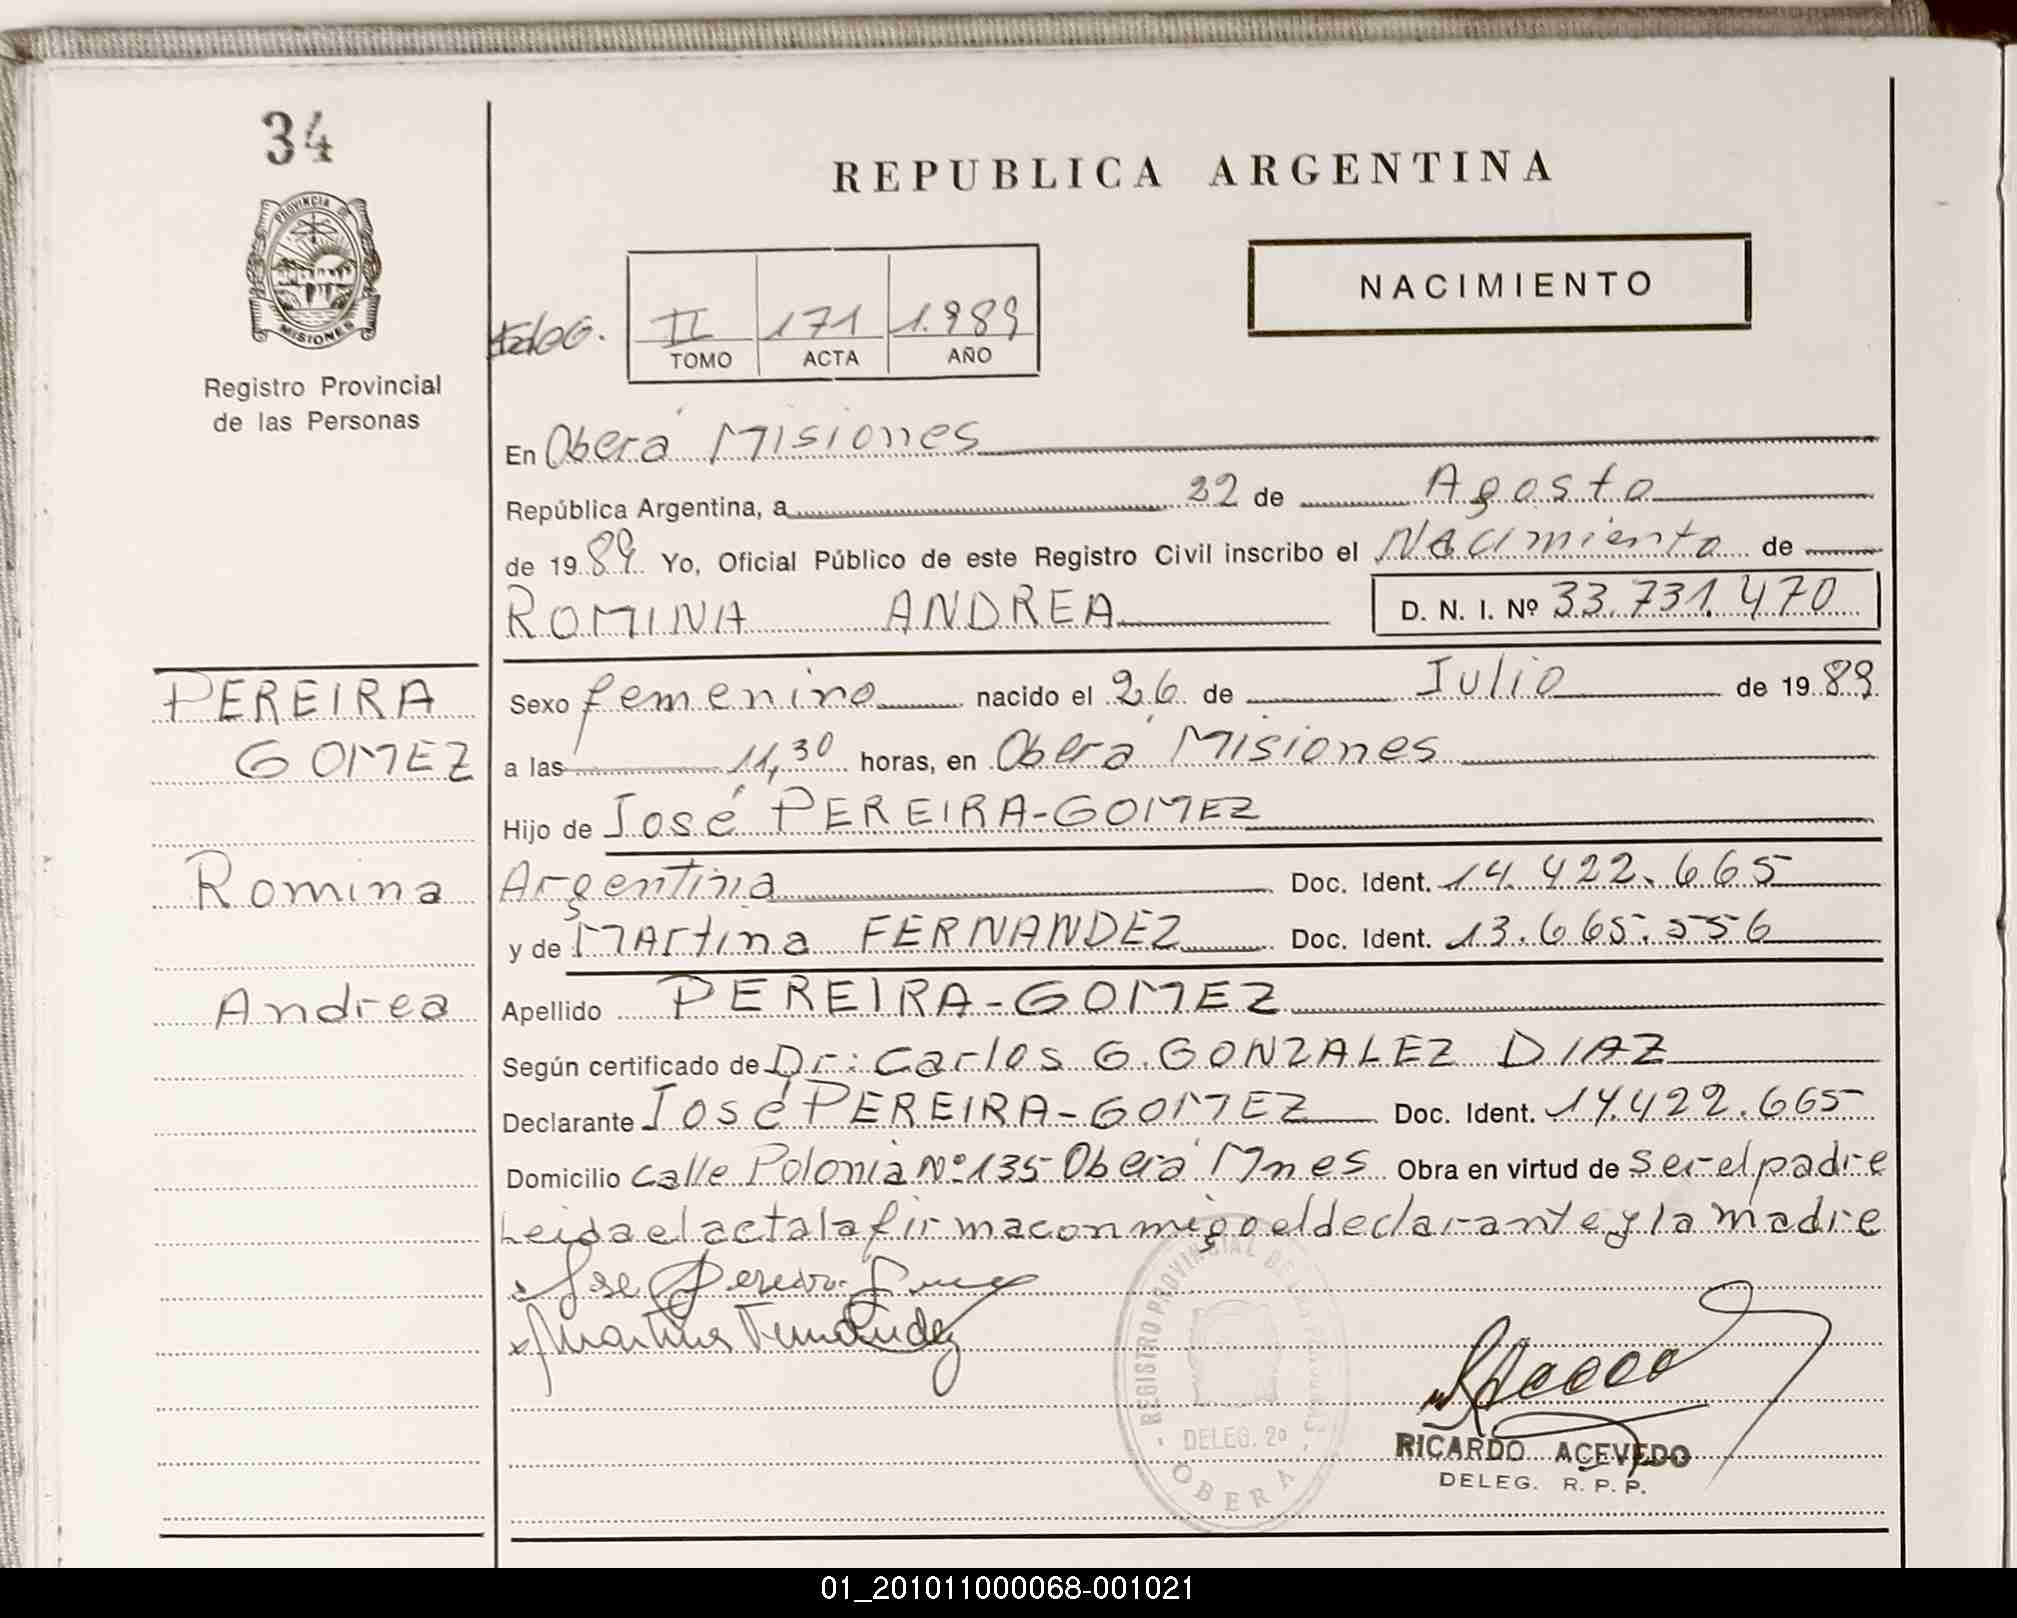 34
PROVINCIA DE
MISIONES
Registro Provincial
de las Personas
REPUBLICA ARGENTINA
NACIMIENTO
II 171 1.989
TOMO ACTA AÑO
En Oberá Misiones
República Argentina, a 22 de Agosto
de 1989 Yo, Oficial Público de este Registro Civil inscribo el Nacimiento de
ROMINA ANDREA D. N. I. Nº 33.731.470
PEREIRA
GOMEZ
Romina
Andrea
Sexo femenino nacido el 26 de Julio de 1989
a las 11,30 horas, en Oberá Misiones
Hijo de José PEREIRA-GOMEZ
Argentina Doc. Ident. 14.422.665
y de MArtina FERNANDEZ Doc. Ident. 13.665.556
Apellido PEREIRA-GOMEZ
Según certificado de Dr: Carlos G. GONZALEZ DIAZ
Declarante José PEREIRA-GOMEZ Doc. Ident. 14.422.665
Domicilio calle Polonia Nº 135 Oberá Mnes Obra en virtud de ser el padre
Leida el acta la firma conmigo el declarante y la madre
José Pereira Gomez
Martina Fernandez
REGISTRO PROVINCIAL DE LAS
DELEG. 2º
OBERA
RICARDO ACEVEDO
DELEG. R. P. P.
01_201011000068-001021